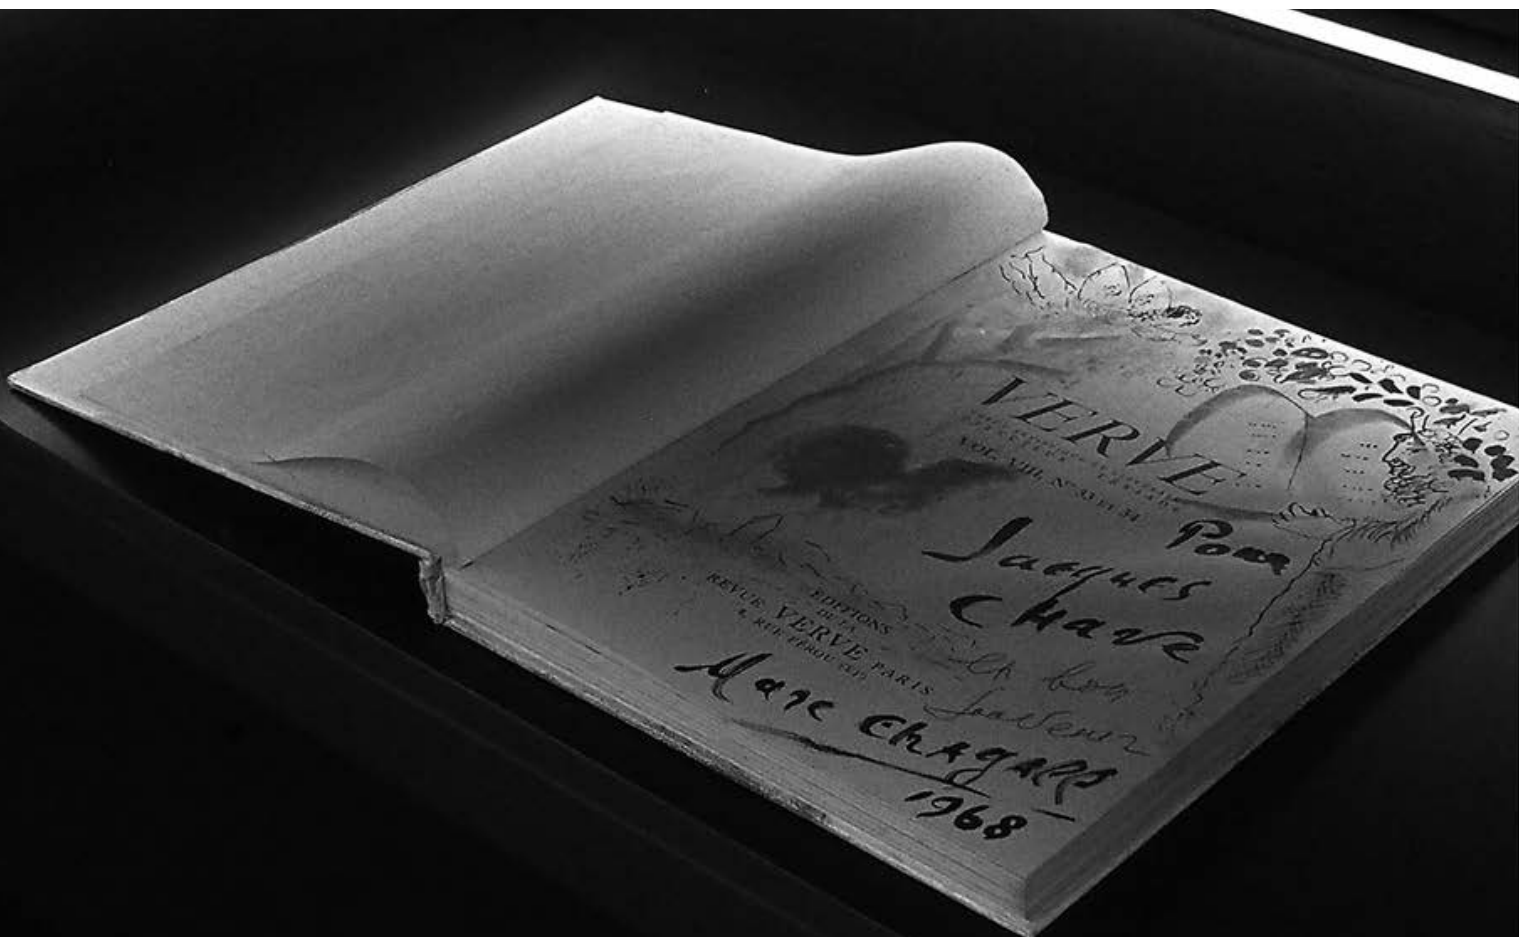 VERVE
VOL. VIII, Nos 33 ET 34
Pour
Jacques
Chave
EDITIONS
DE LA
REVUE VERVE PARIS
4, RUE FÉROU (VIe)
bon
Souvenir
Marc Chagall
1968